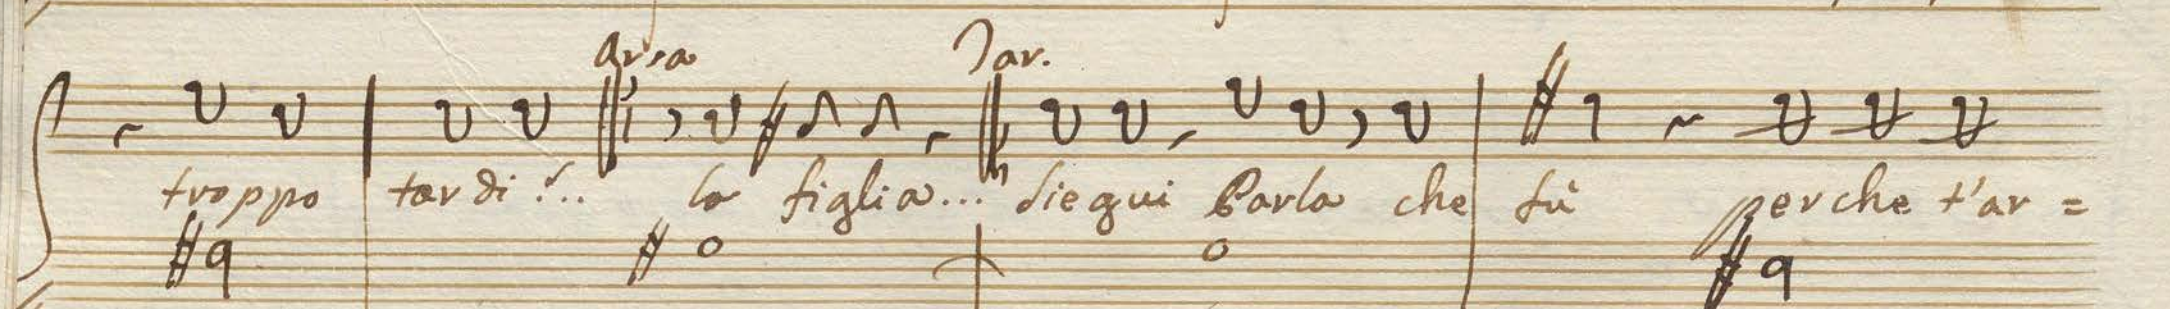 Arsa Tar.
troppo tardi!... la figlia... siegui Parla che fù perche t'ar =